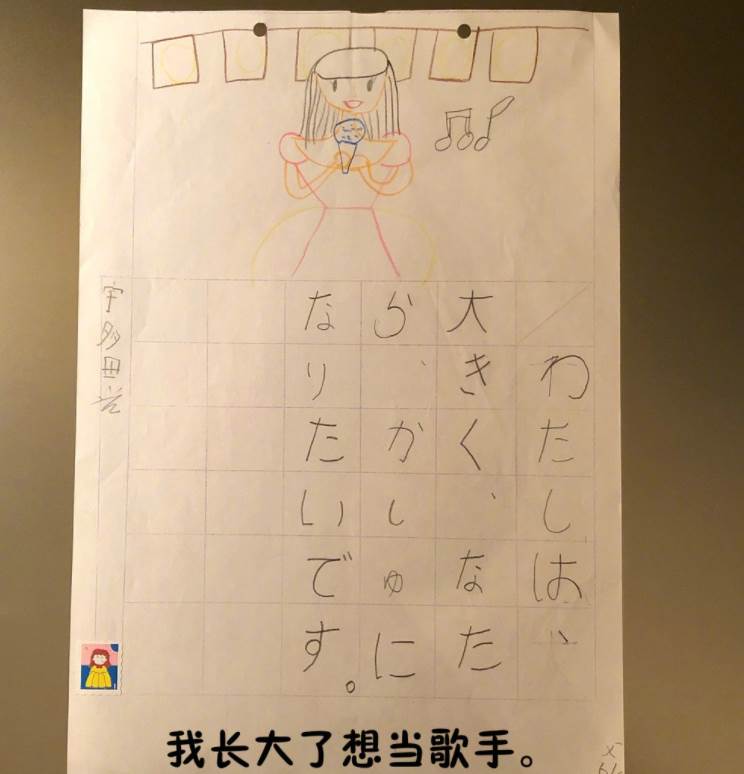 わたしは、
大きく、なた
ら、かしゅに
なりたいです。
宇多田光
我长大了想当歌手。